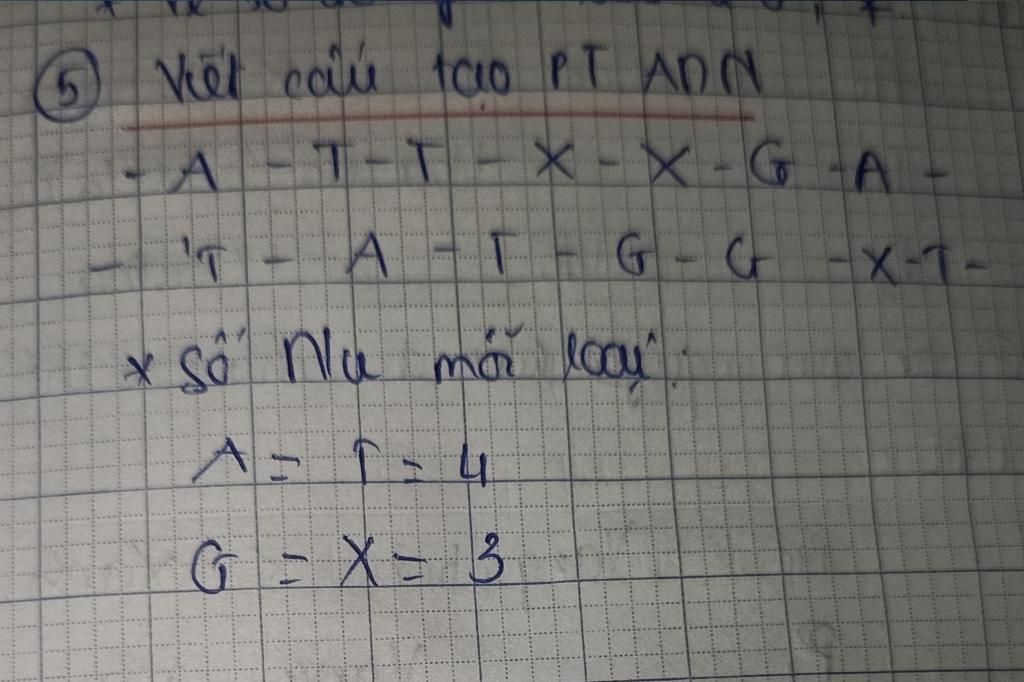 ⑤ Viết cấu tạo PT ADN
- A - T - T - X - X - G - A -
- T - A - T - G - G - X - T -
* Số Nu mỗi loại:
A = T = 4
G = X = 3